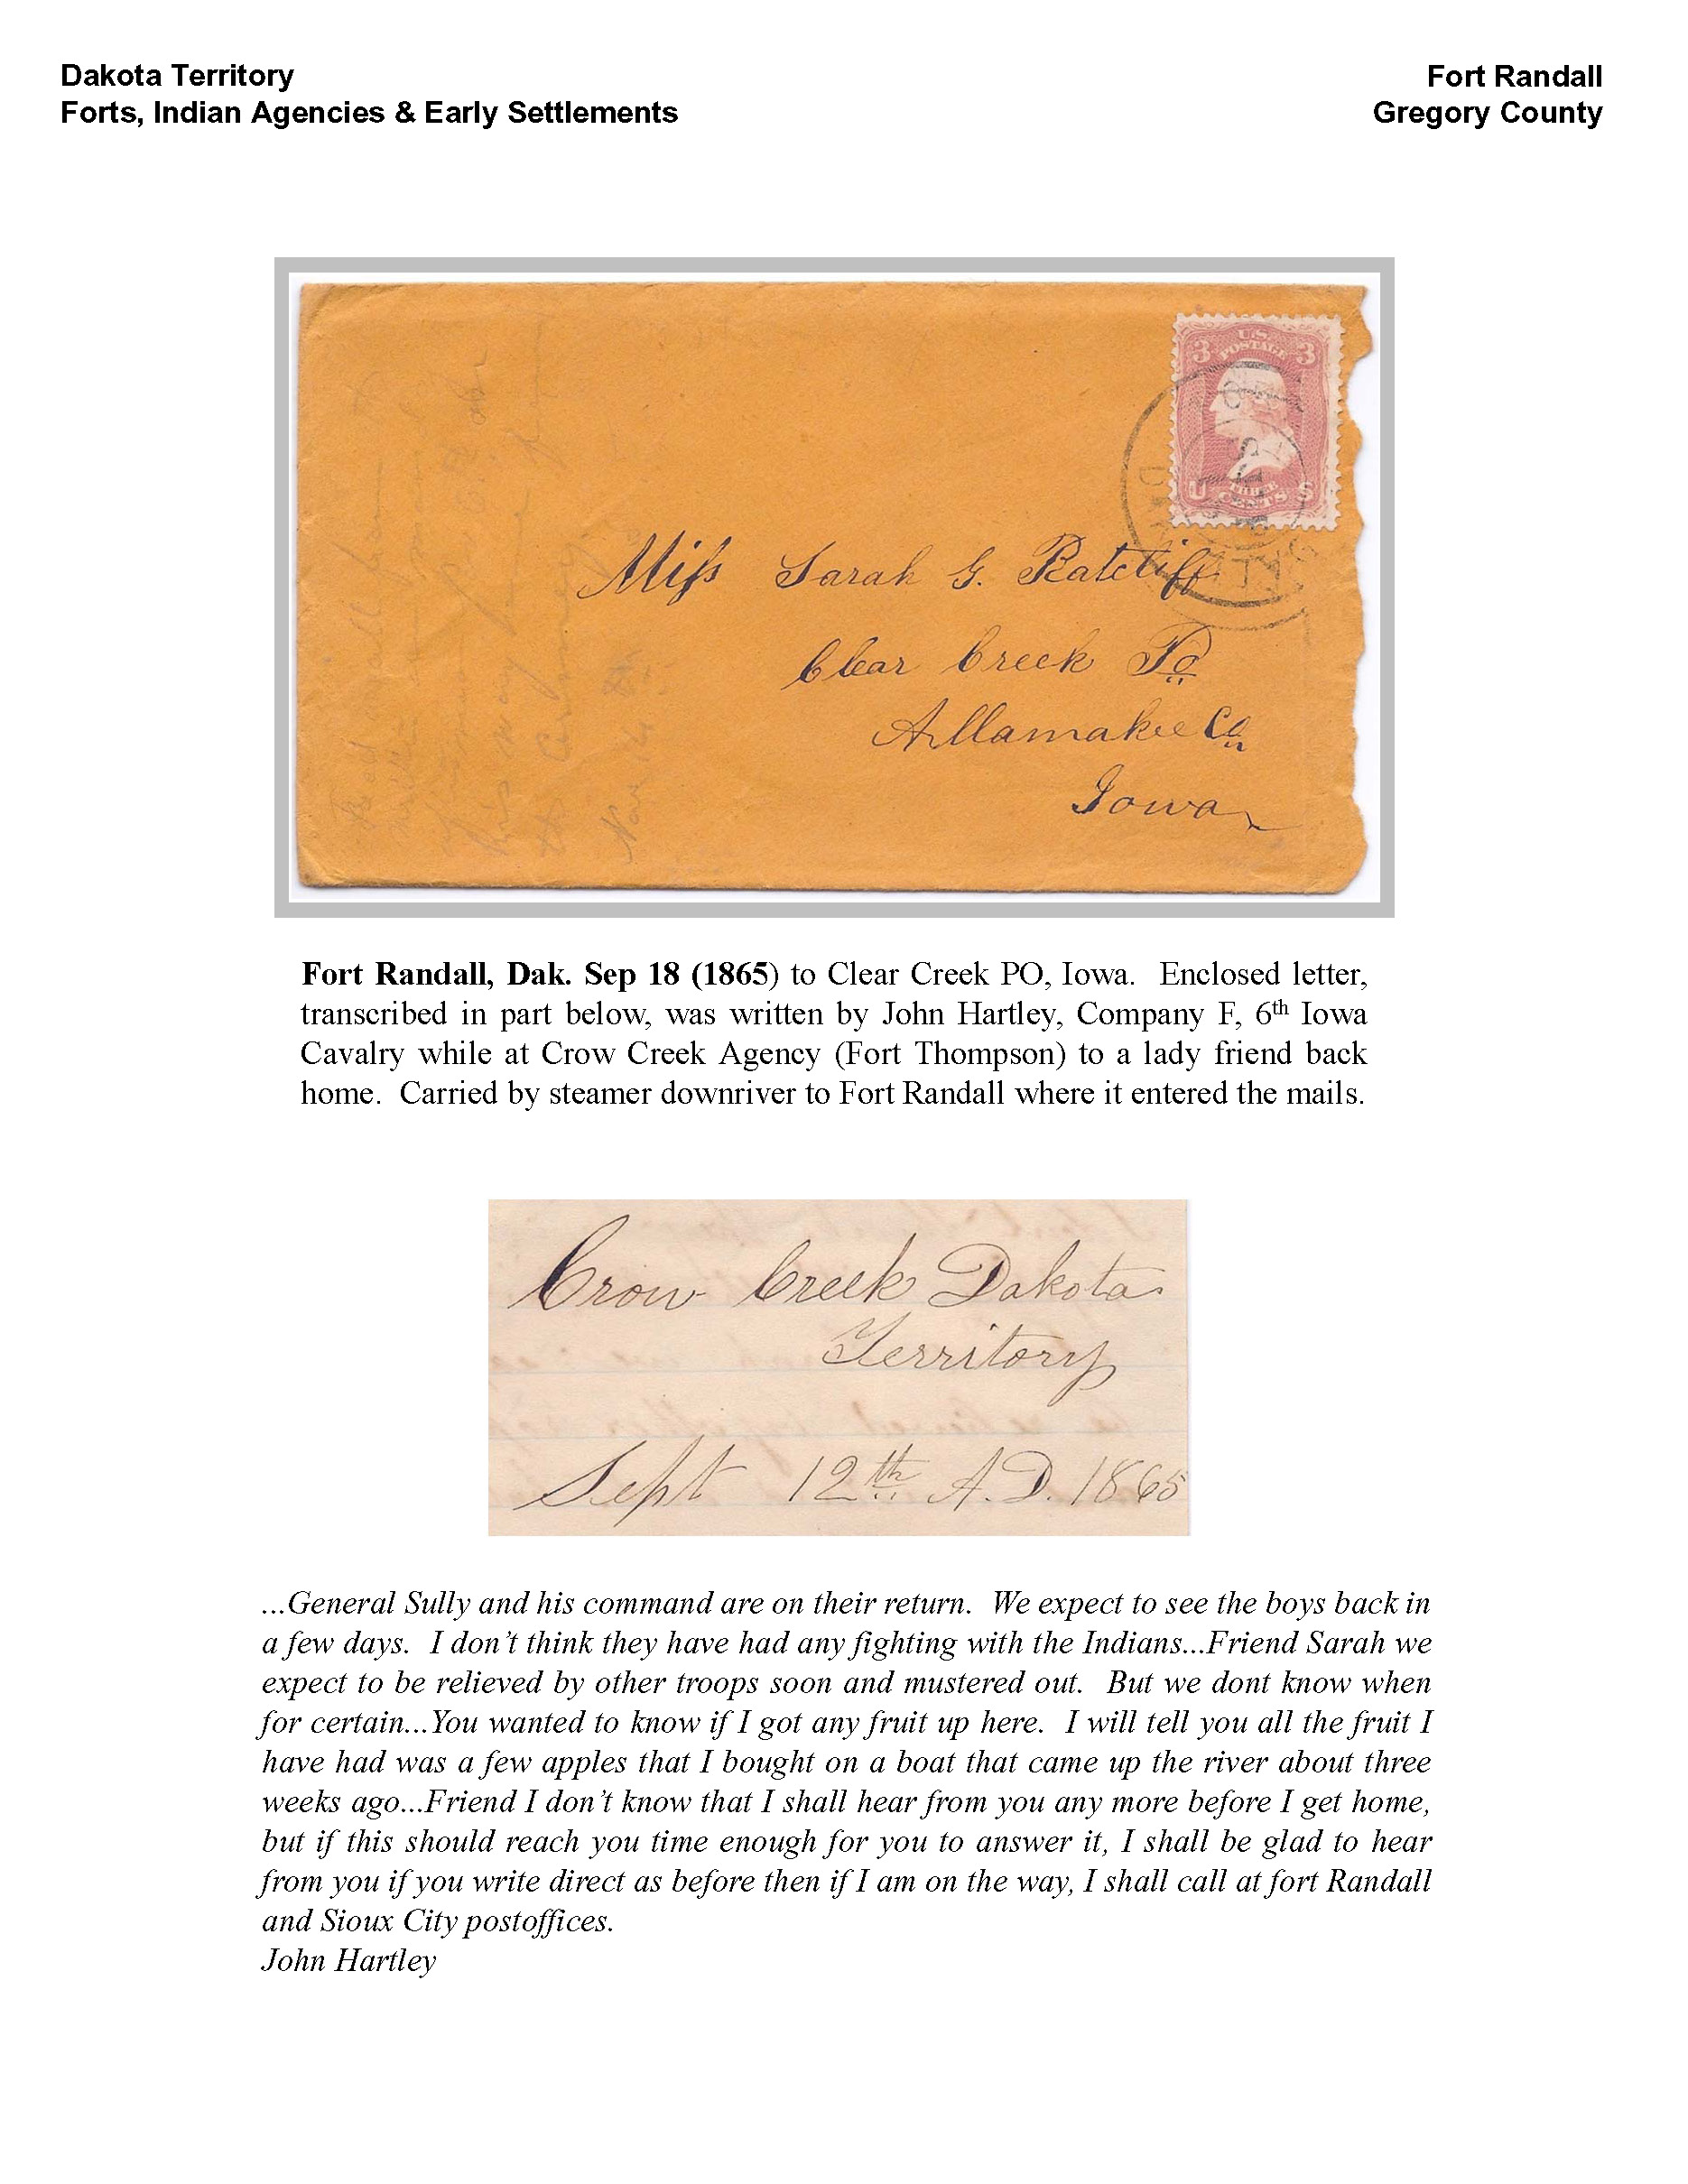 Dakota Territory
Forts, Indian Agencies & Early Settlements
Fort Randall
Gregory County
U.S.
POSTAGE
3 3
U THREE S
CENTS
Miss Sarah G. Ratcliff
Clear Creek Po
Allamakee Co
Iowa
Fort Randall, Dak. Sep 18 (1865) to Clear Creek PO, Iowa. Enclosed letter,
transcribed in part below, was written by John Hartley, Company F, 6th Iowa
Cavalry while at Crow Creek Agency (Fort Thompson) to a lady friend back
home. Carried by steamer downriver to Fort Randall where it entered the mails.
Crow Creek Dakota
Territory
Sept 12th A.D. 1865
...General Sully and his command are on their return. We expect to see the boys back in
a few days. I don't think they have had any fighting with the Indians...Friend Sarah we
expect to be relieved by other troops soon and mustered out. But we dont know when
for certain...You wanted to know if I got any fruit up here. I will tell you all the fruit I
have had was a few apples that I bought on a boat that came up the river about three
weeks ago...Friend I don't know that I shall hear from you any more before I get home,
but if this should reach you time enough for you to answer it, I shall be glad to hear
from you if you write direct as before then if I am on the way, I shall call at fort Randall
and Sioux City postoffices.
John Hartley